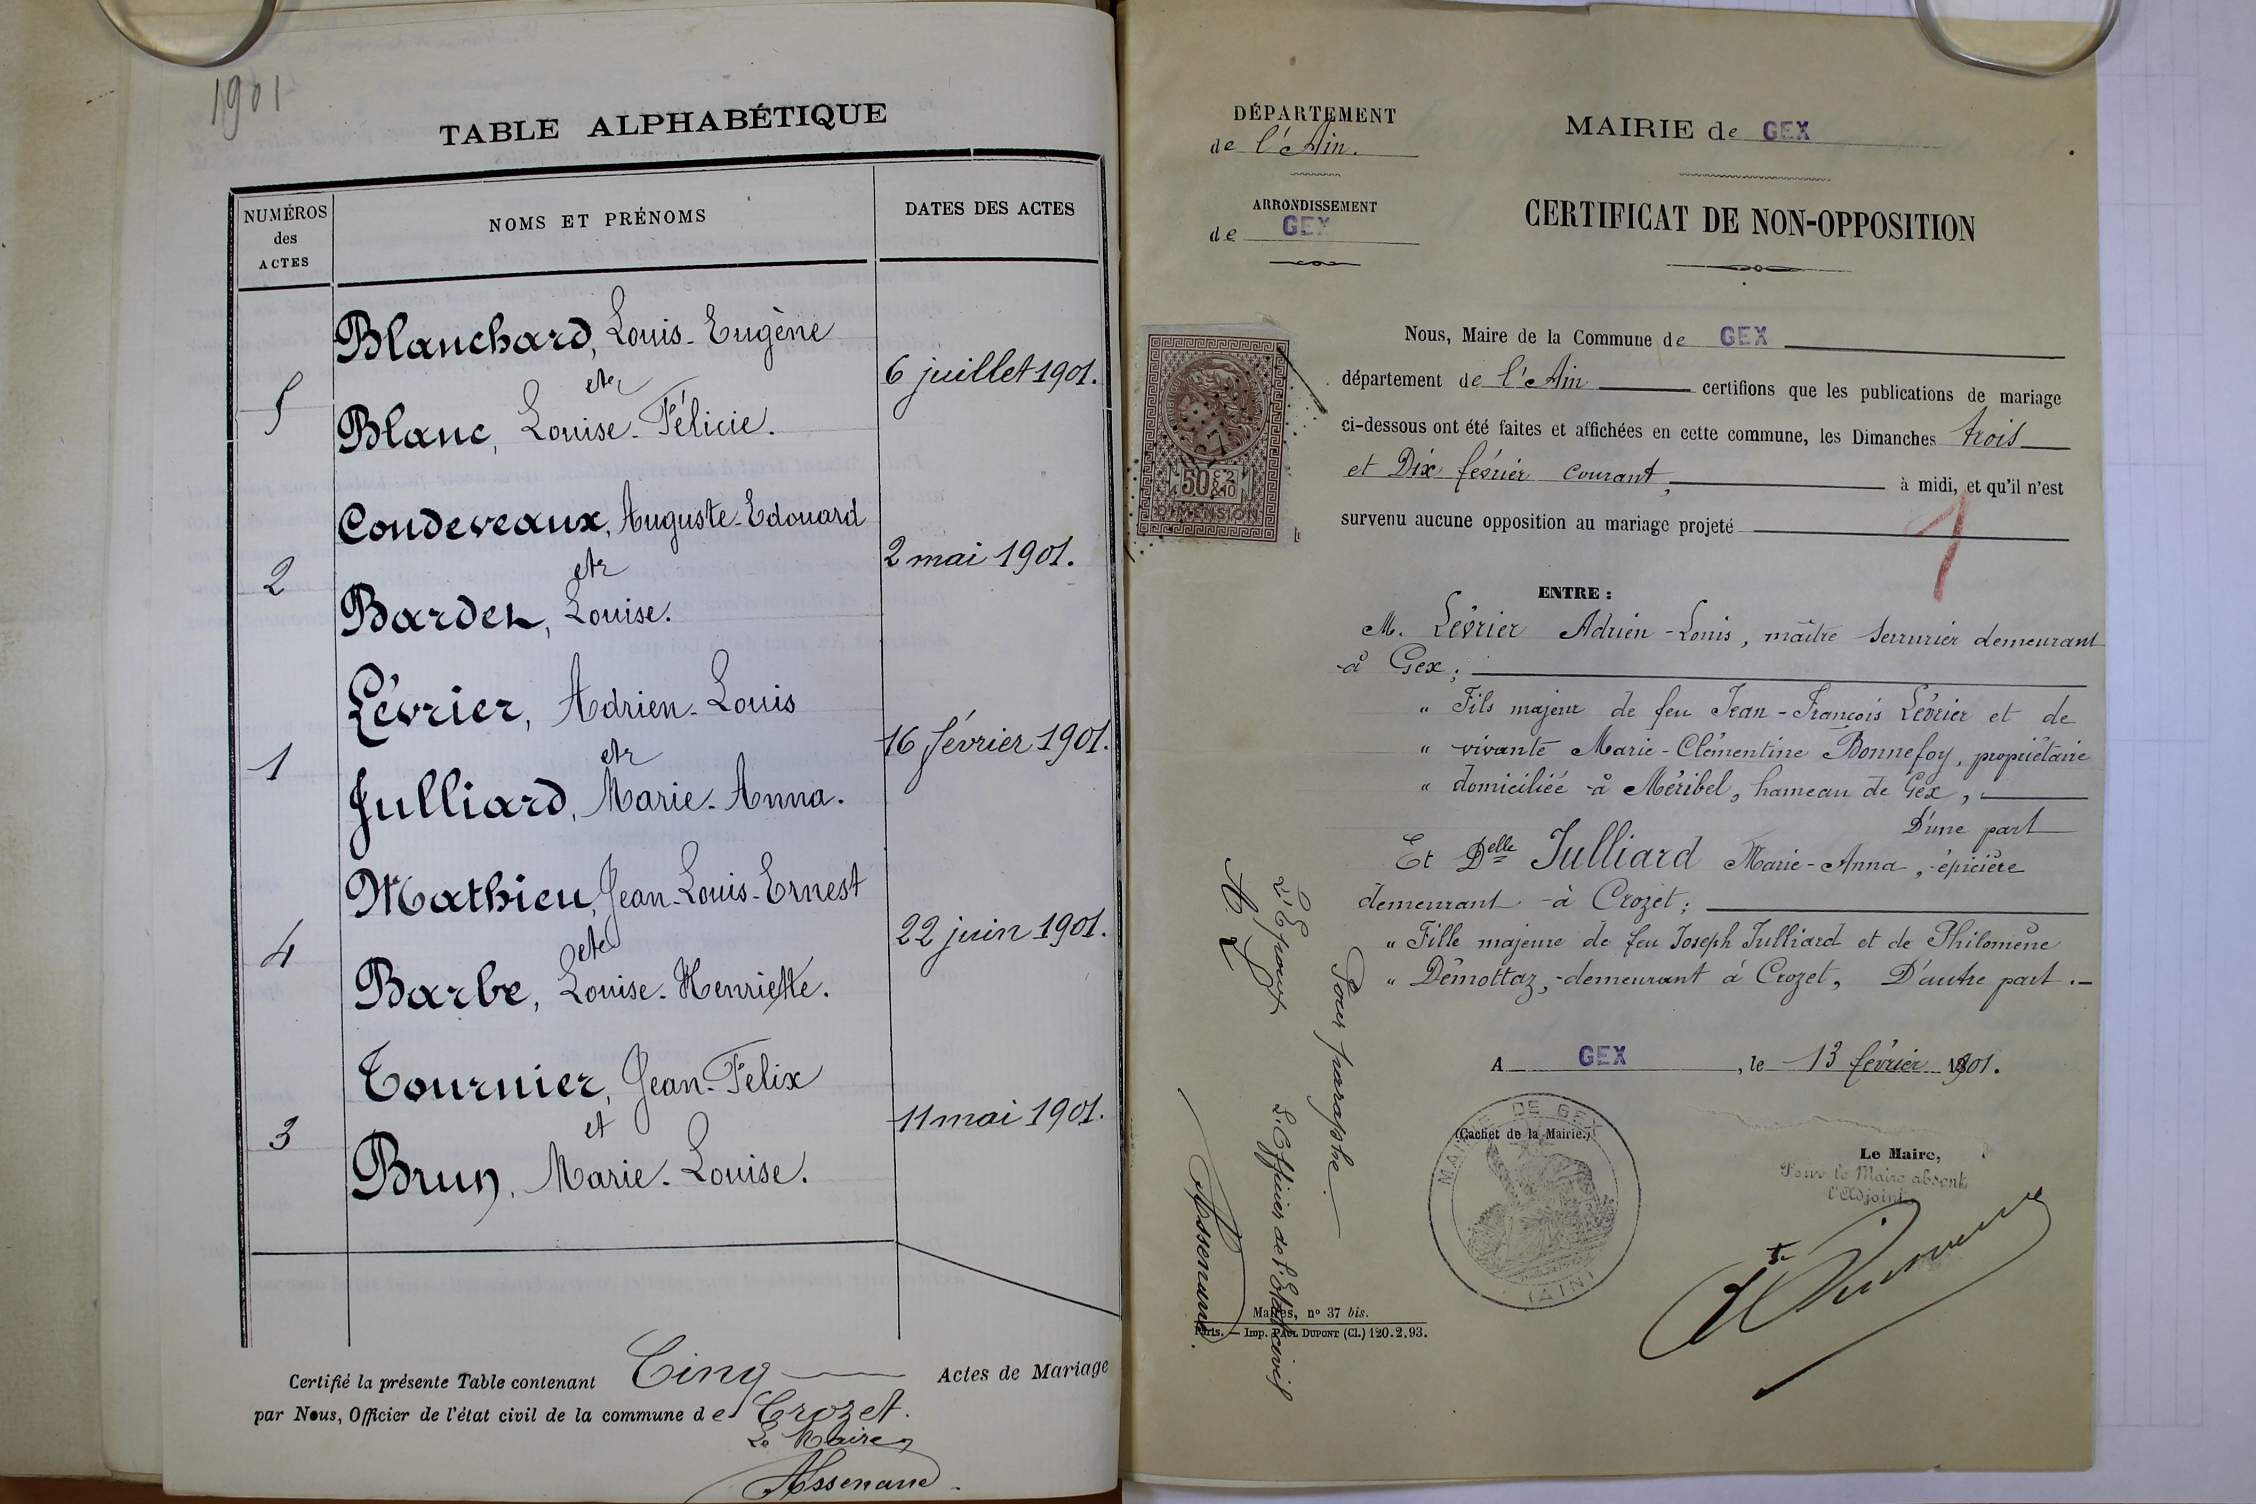 1901
TABLE ALPHABÉTIQUE
NUMÉROS
des
ACTES
NOMS ET PRÉNOMS
DATES DES ACTES
Blanchard, Louis-Eugène
et
5
6 juillet 1901.
Blanc, Louise-Félicie.
Condeveaux, Auguste-Edouard
et
2
2 mai 1901.
Bardet, Louise.
Lévrier, Adrien-Louis
et
1
16 février 1901.
Julliard, Marie-Anna.
Mathieu, Jean-Louis-Ernest
et
4
22 juin 1901.
Barbe, Louise-Henriette.
Tournier, Jean-Felix
et
3
11 mai 1901.
Brun, Marie-Louise.
Certifié la présente Table contenant Cinq Actes de Mariage
par Nous, Officier de l'état civil de la commune de Crozet.
Le Maire
DÉPARTEMENT
de l'Ain.
ARRONDISSEMENT
de GEX
MAIRIE de GEX
CERTIFICAT DE NON-OPPOSITION
50 c 2/10
DIMENSION
Nous, Maire de la Commune de GEX
département de l'Ain certifions que les publications de mariage
ci-dessous ont été faites et affichées en cette commune, les Dimanches trois
et Dix février courant, à midi, et qu'il n'est
survenu aucune opposition au mariage projeté
1
ENTRE :
M. Lévrier Adrien-Louis, maître serrurier demeurant
à Gex;
" Fils majeur de feu Jean-François Lévrier et de
" vivante Marie-Clémentine Bonnefoy, propriétaire
" domiciliée à Méribel, hameau de Gex,
D'une part
Et Delle Julliard Marie-Anna, épicière
demeurant à Crozet;
" Fille majeure de feu Joseph Julliard et de Philomène
" Démottaz, demeurant à Crozet, D'autre part.
A GEX, le 13 février 1901.
MAIRIE DE GEX
(AIN)
(Cachet de la Mairie.)
Le Maire,
Pour le Maire absent
l'Adjoint
Pour paraphe.
L'Epoux
A. L
L'Officier de l'Etat civil
Mairies, n° 37 bis.
Paris. — Imp. PAUL DUPONT (Cl.) 120.2.93.